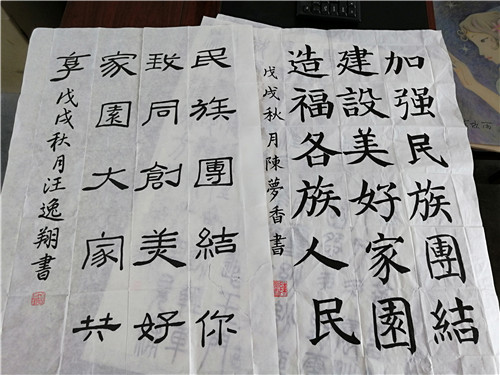 加强民族團結
建設美好家園
造福各族人民
戊戌秋月陳夢香書
民族團結你
我同創美好
家園大家共
享
戊戌秋月汪逸翔書